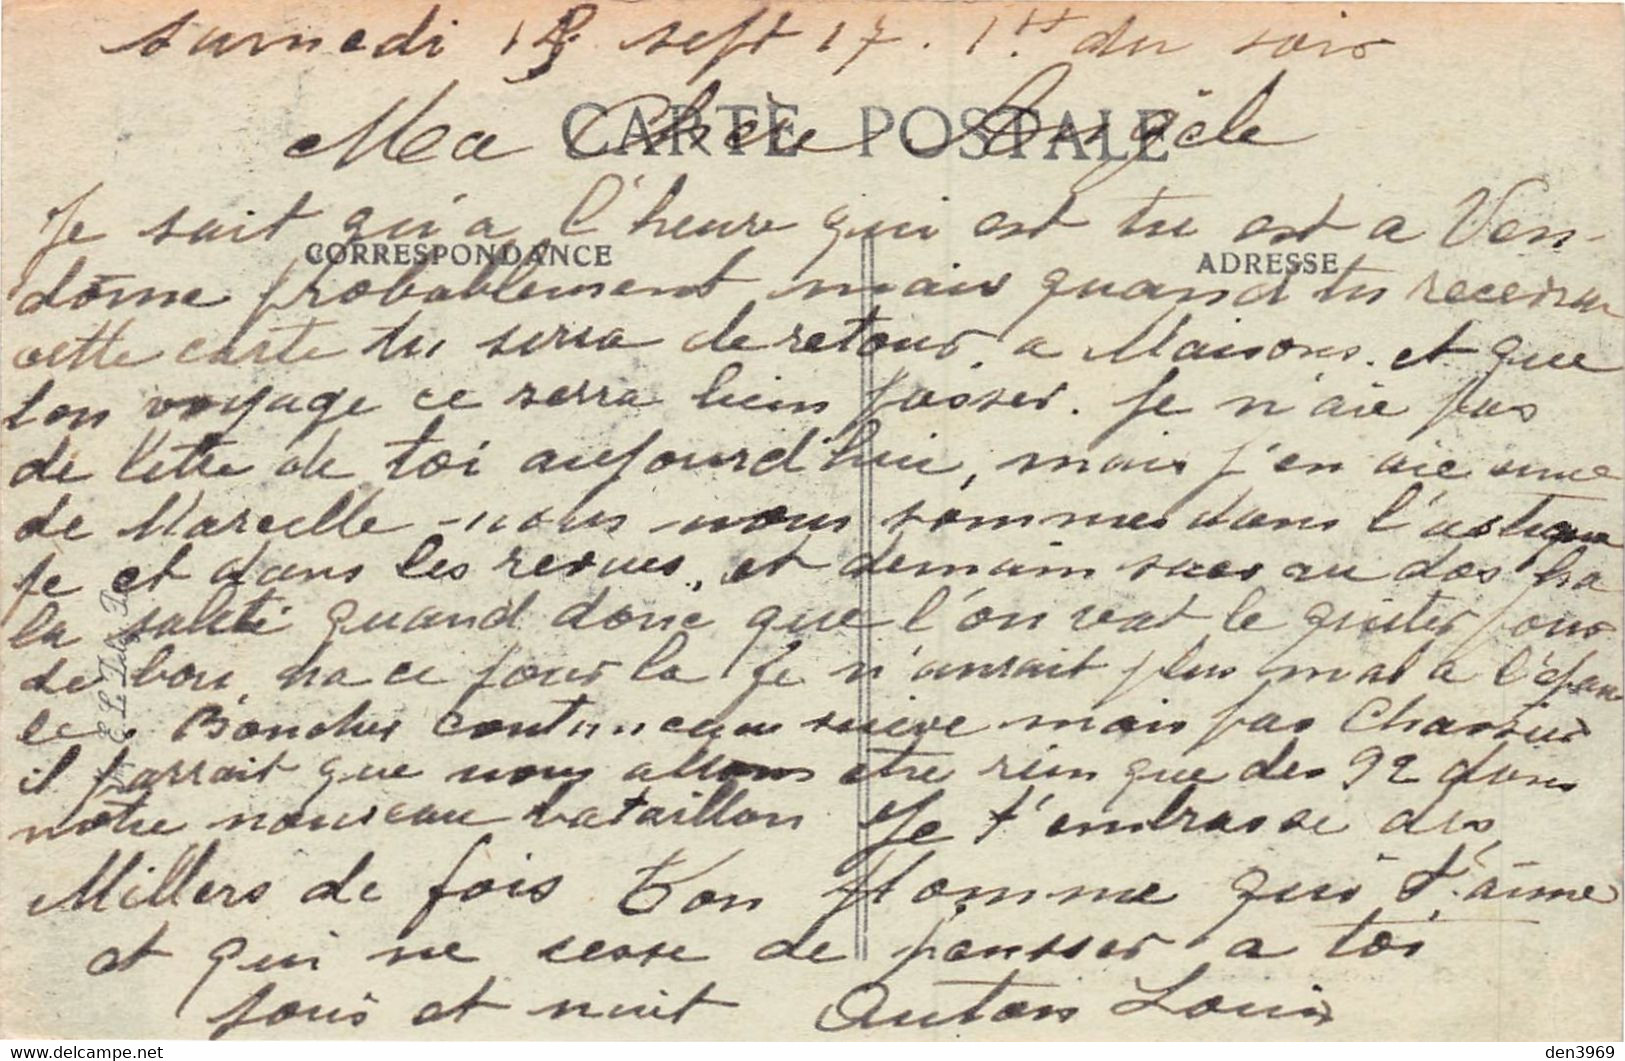 samedi 15 sept 17. 1 H du soir
CARTE POSTALE
Ma Chère Angèle
CORRESPONDANCE
ADRESSE
Je sait qu'a l'heure qui est tu est a Ven-
dôme probablement mais quand tu recevra
cette carte tu serra de retour a Maisons. et que
ton voyage ce serra bien passer. Je n'aie pas
de lettre de toi aujourd'hui, mais j'en aie une
de Marcelle - nous nous sommes dans l'astiqua
je et dans les revues, et demain sacs au dos ha
la saleté quand donc que l'on vat le quiter pour
de bon, ha ce jour la je n'aurait plus mal a l'épau
le. Boucher continu a me suivre mais pas Chassin
il parrait que nous allons etre rien que des 92 dans
notre nouveau bataillon Je t'embrasse des
Millers de fois Ton Homme qui t'aime
et qui ne cesse de pensser a toi
jour et nuit Louis
E. Le
den3969